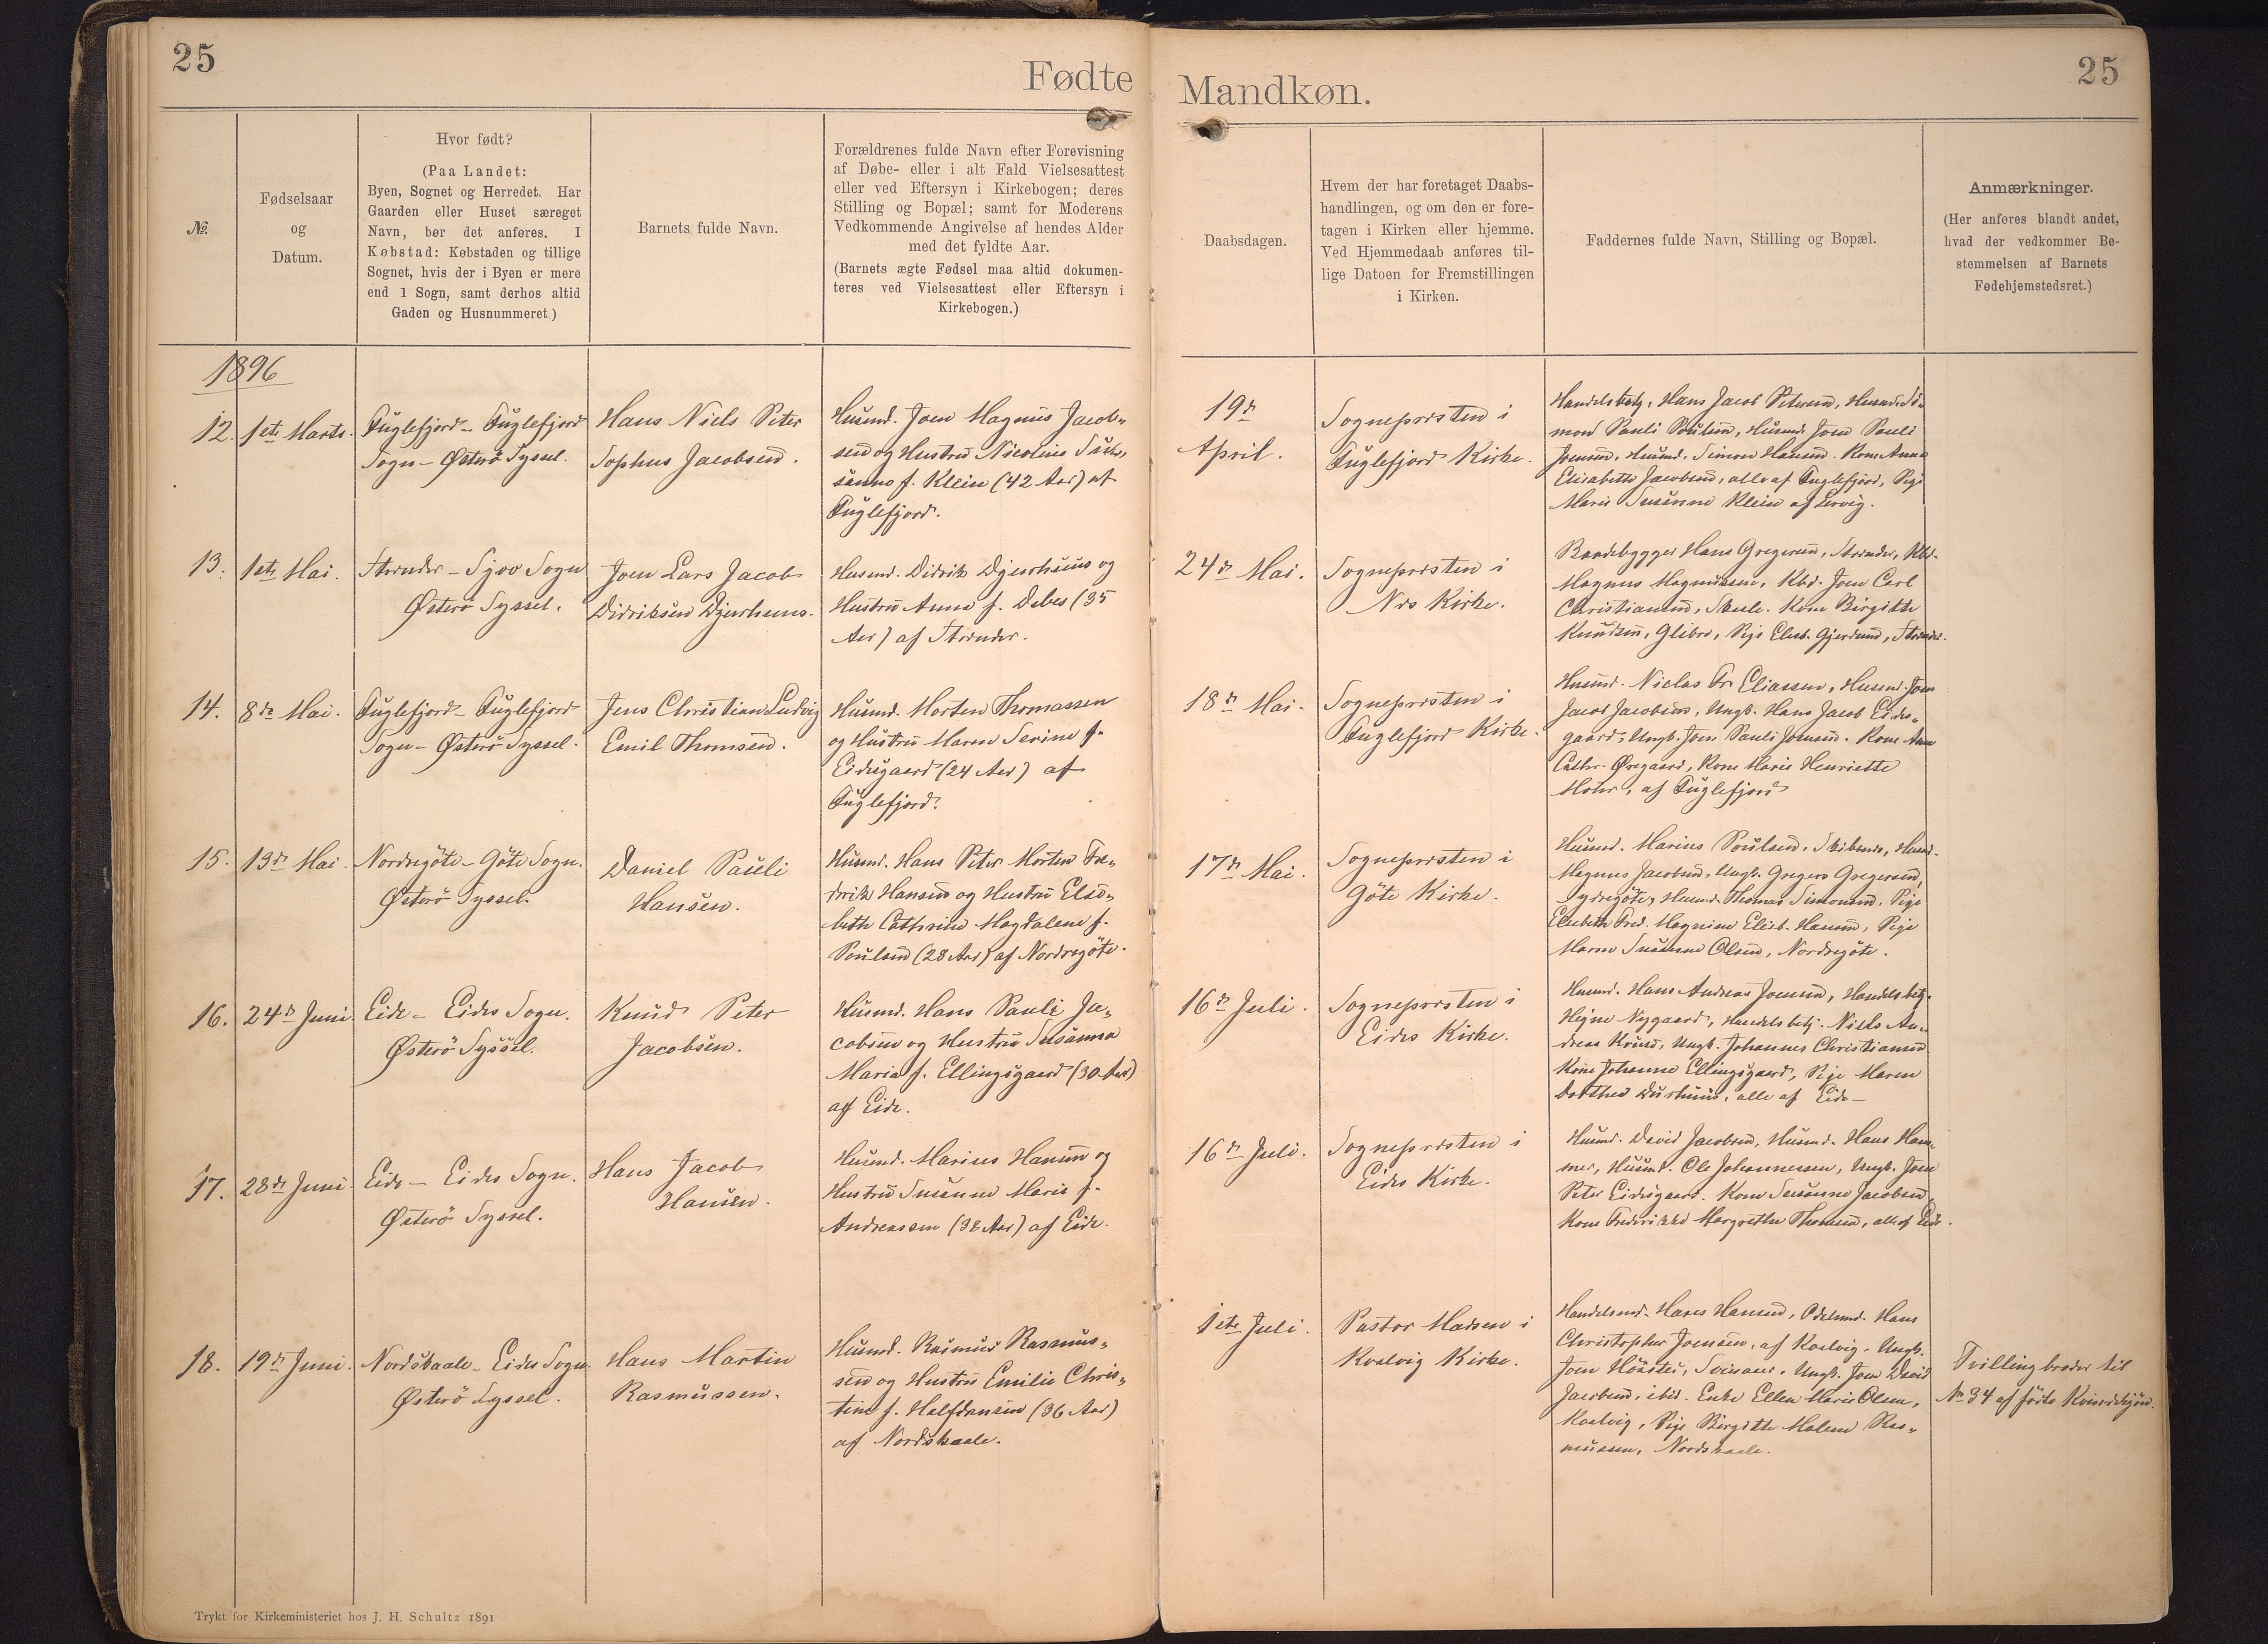 25
Fødte
№
Fødselsaar
og
Datum.
Hvor født?
(Paa Landet:
Byen, Sognet og Herredet. Har
Gaarden eller Huset særeget
Navn, bør det anføres. I
Købstad: Købstaden og tillige
Sognet, hvis der i Byen er mere
end 1 Sogn, samt derhos altid
Gaden og Husnummeret.)
Barnets fulde Navn.
Forældrenes fulde Navn efter Forevisning
af Døbe- eller i alt Fald Vielsesattest
eller ved Eftersyn i Kirkebogen; deres
Stilling og Bopæl; samt for Moderens
Vedkommende Angivelse af hendes Alder
med det fyldte Aar.
(Barnets ægte Fødsel maa altid dokumen-
teres ved Vielsesattest eller Eftersyn i
Kirkebogen.)
1896
12.
1ste Marts.
Fuglefjord - Fuglefjord
Sogn - Østerö Syssel.
Hans Niels Peter
Sophus Jacobsen.
Husmd. Joen Magnus Jacob-
sen og Hustru Nicoline Su-
sanne f. Klein (42 Aar) af
Fuglefjord.
13.
1ste Mai.
Strender - Sjov Sogn
Østerö Syssel.
Joen Lars Jacob
Didriksen Djurhuus.
Husmd. Didrik Djurhuus og
Hustru Anne f. Debes (35
Aar) af Strender.
14.
8de Mai.
Fuglefjord - Fuglefjord
Sogn - Østerö Syssel.
Jens Christian Ludvig
Emil Thomsen.
Husmd. Morten Thomassen
og Hustru Maren Serine f.
Eidisgaard (24 Aar) af
Fuglefjord.
15.
13de Mai.
Nordregöte - Göte Sogn.
Østerö Syssel.
Daniel Pauli
Hansen.
Husmd. Hans Peter Morten Fre-
drik Hansen og Hustru Else-
beth Cathrine Magdalene f.
Poulsen (28 Aar) af Nordregöte.
16.
24de Juni.
Eide - Eides Sogn.
Østerö Syssel.
Knud Peter
Jacobsen.
Husmd. Hans Pauli Ja-
cobsen og Hustru Susanna
Maria f. Ellingsgaard (30 Aar)
af Eide.
17.
28de Juni.
Eide - Eides Sogn.
Østerö Syssel.
Hans Jacob
Hansen.
Husmd. Marius Hansen og
Hustru Susanne Marie f.
Andreassen (38 Aar) af Eide.
18.
19de Juni.
Nordskaale - Eides Sogn.
Østerö Syssel.
Hans Martin
Rasmussen.
Husmd. Rasmus Rasmus-
sen og Hustru Emilie Chris-
tine f. Halfdansen (36 Aar)
af Nordskaale.
Trykt for Kirkeministeriet hos J. H. Schultz 1891
25
Mandkøn.
Daabsdagen.
Hvem der har foretaget Daabs-
handlingen, og om den er fore-
tagen i Kirken eller hjemme.
Ved Hjemmedaab anføres til-
lige Datoen for Fremstillingen
i Kirken.
Faddernes fulde Navn, Stilling og Bopæl.
Anmærkninger.
(Her anføres blandt andet,
hvad der vedkommer Be-
stemmelsen af Barnets
Fødehjemstedsret.)
19de
April.
Sognepresten i
Fuglefjord Kirke.
Handelsbetj. Hans Jacob Petersen, Husmd. Si-
mon Pauli Poulsen, Husmd. Joen Pauli
Joensen, Husmd. Simon Hansen. Kone Anna
Elisabeth Jacobsen, alle af Fuglefjord, Pige
Marie Susanne Klein af Lervig.
24de Mai.
Sognepresten i
Nes Kirke.
Baadebygger Hans Gregersen, Strender, Kbd.
Magnus Magnussen, Kbd. Joen Carl
Christiansen, Kone Birgitte
Knudsen, Glibre, Pige Elisb. Gjerdund, Strender.
18de Mai.
Sognepresten i
Fuglefjord Kirke.
Husmd. Niclas Fr. Eliassen, Husmd. Joen
Jacob Jacobsen, Ungk. Hans Jacob Eides-
gaard, Ungk. Joen Pauli Joensen. Kone Anne
Cathr. Øregaard, Kone Marie Henriette
Mohr, af Fuglefjord
17de Mai.
Sognepresten i
Göte Kirke.
Husmd. Marius Poulsen, Husmd.
Magnus Jacobsen, Ungk. Gregers Gregersen,
Sydregöte, Husmd. Thomas Simonsen. Pige
Elsebeth Fred. Magnine Elisb. Hansen, Pige
Maren Susanne Olsen, Nordregöte.
16de Juli.
Sognepresten i
Eides Kirke.
Husmd. Hans Andreas Joensen, Handelsbetj.
Hejne Nygaard, Handelsbetj. Niels An-
dreas Kruse, Ungk. Johannes Christiansen
Kone Johanne Ellingsgaard, Pige Maren
Dorthea Durhuus, alle af Eide -
16de Juli.
Sognepresten i
Eides Kirke.
Husmd. David Jacobsen, Husmd. Hans Ham-
mer, Husmd. Ole Johannessen, Ungk. Joen
Peter Eidisgaard. Kone Susanne Jacobsen,
Kone Frederikke Margrethe Thomsen, alle af Eide.
1ste Juli.
Pastor Madsen i
Kvalvig Kirke.
Handelsmd. Hans Hansen, Odelsmd. Hans
Christopher Joensen, af Kvalvig, Ungk.
Joen Svinaaer, Ungk. Joen David
Jacobsen, ibid. Enke Ellen Marie Olsen,
Kvalvig, Pige Birgitte Malene Ras-
mussen, Nordskaale.
Tvillingbroder til
№ 34 af födte Kvindekjön.